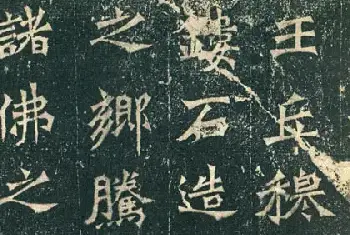 王丘穆
鏤石造
之鄉騰
諸佛之